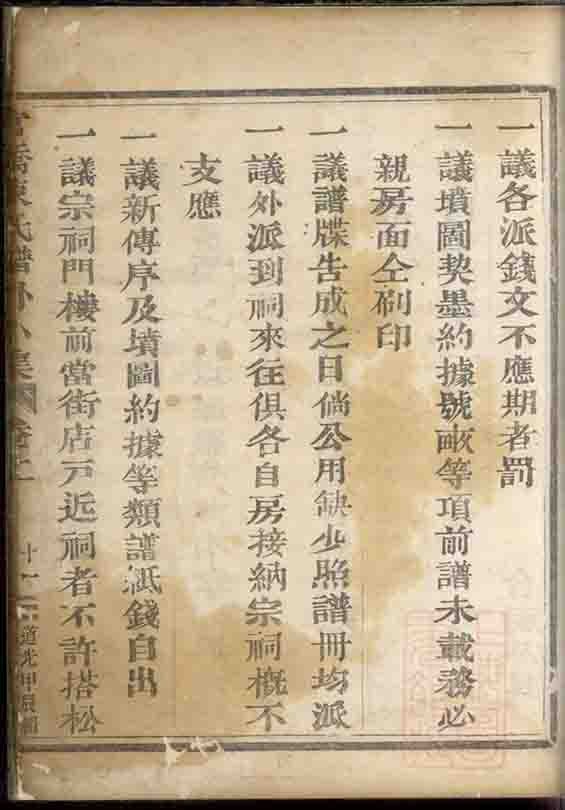 一議各派錢文不應期者罰
一議墳圖契墨約據號畝等項前譜未載務必
親房面仝刷印
一議譜牒告成之日倘公用缺少照譜冊均派
一議外派到祠來往俱各自房接納宗祠概不
支應
一議新傳序及墳圖約據等類譜紙錢自出
一議宗祠門樓前當街店戸近祠者不許搭松
氏譜外 集 卷
十一
道光甲辰輯